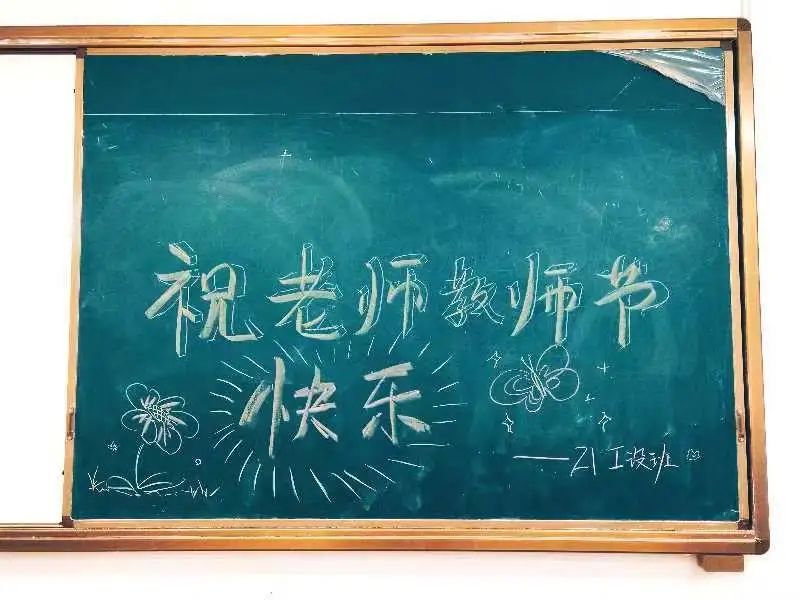 祝老师教师节
快乐
——21工设班